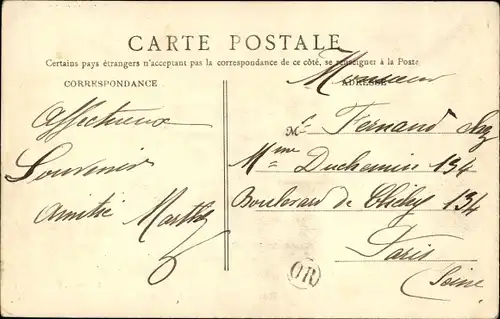 CARTE POSTALE
Certains pays étrangers n'acceptant pas la correspondance de ce côté, se renseigner à la Poste
CORRESPONDANCE
ADRESSE
Affectueux
Souvenir
Amitié Marthe
Monsieur
M Fernand chez
Mme Duchemin 134
Boulevard de Clichy 134
Paris
(Seine)
OR